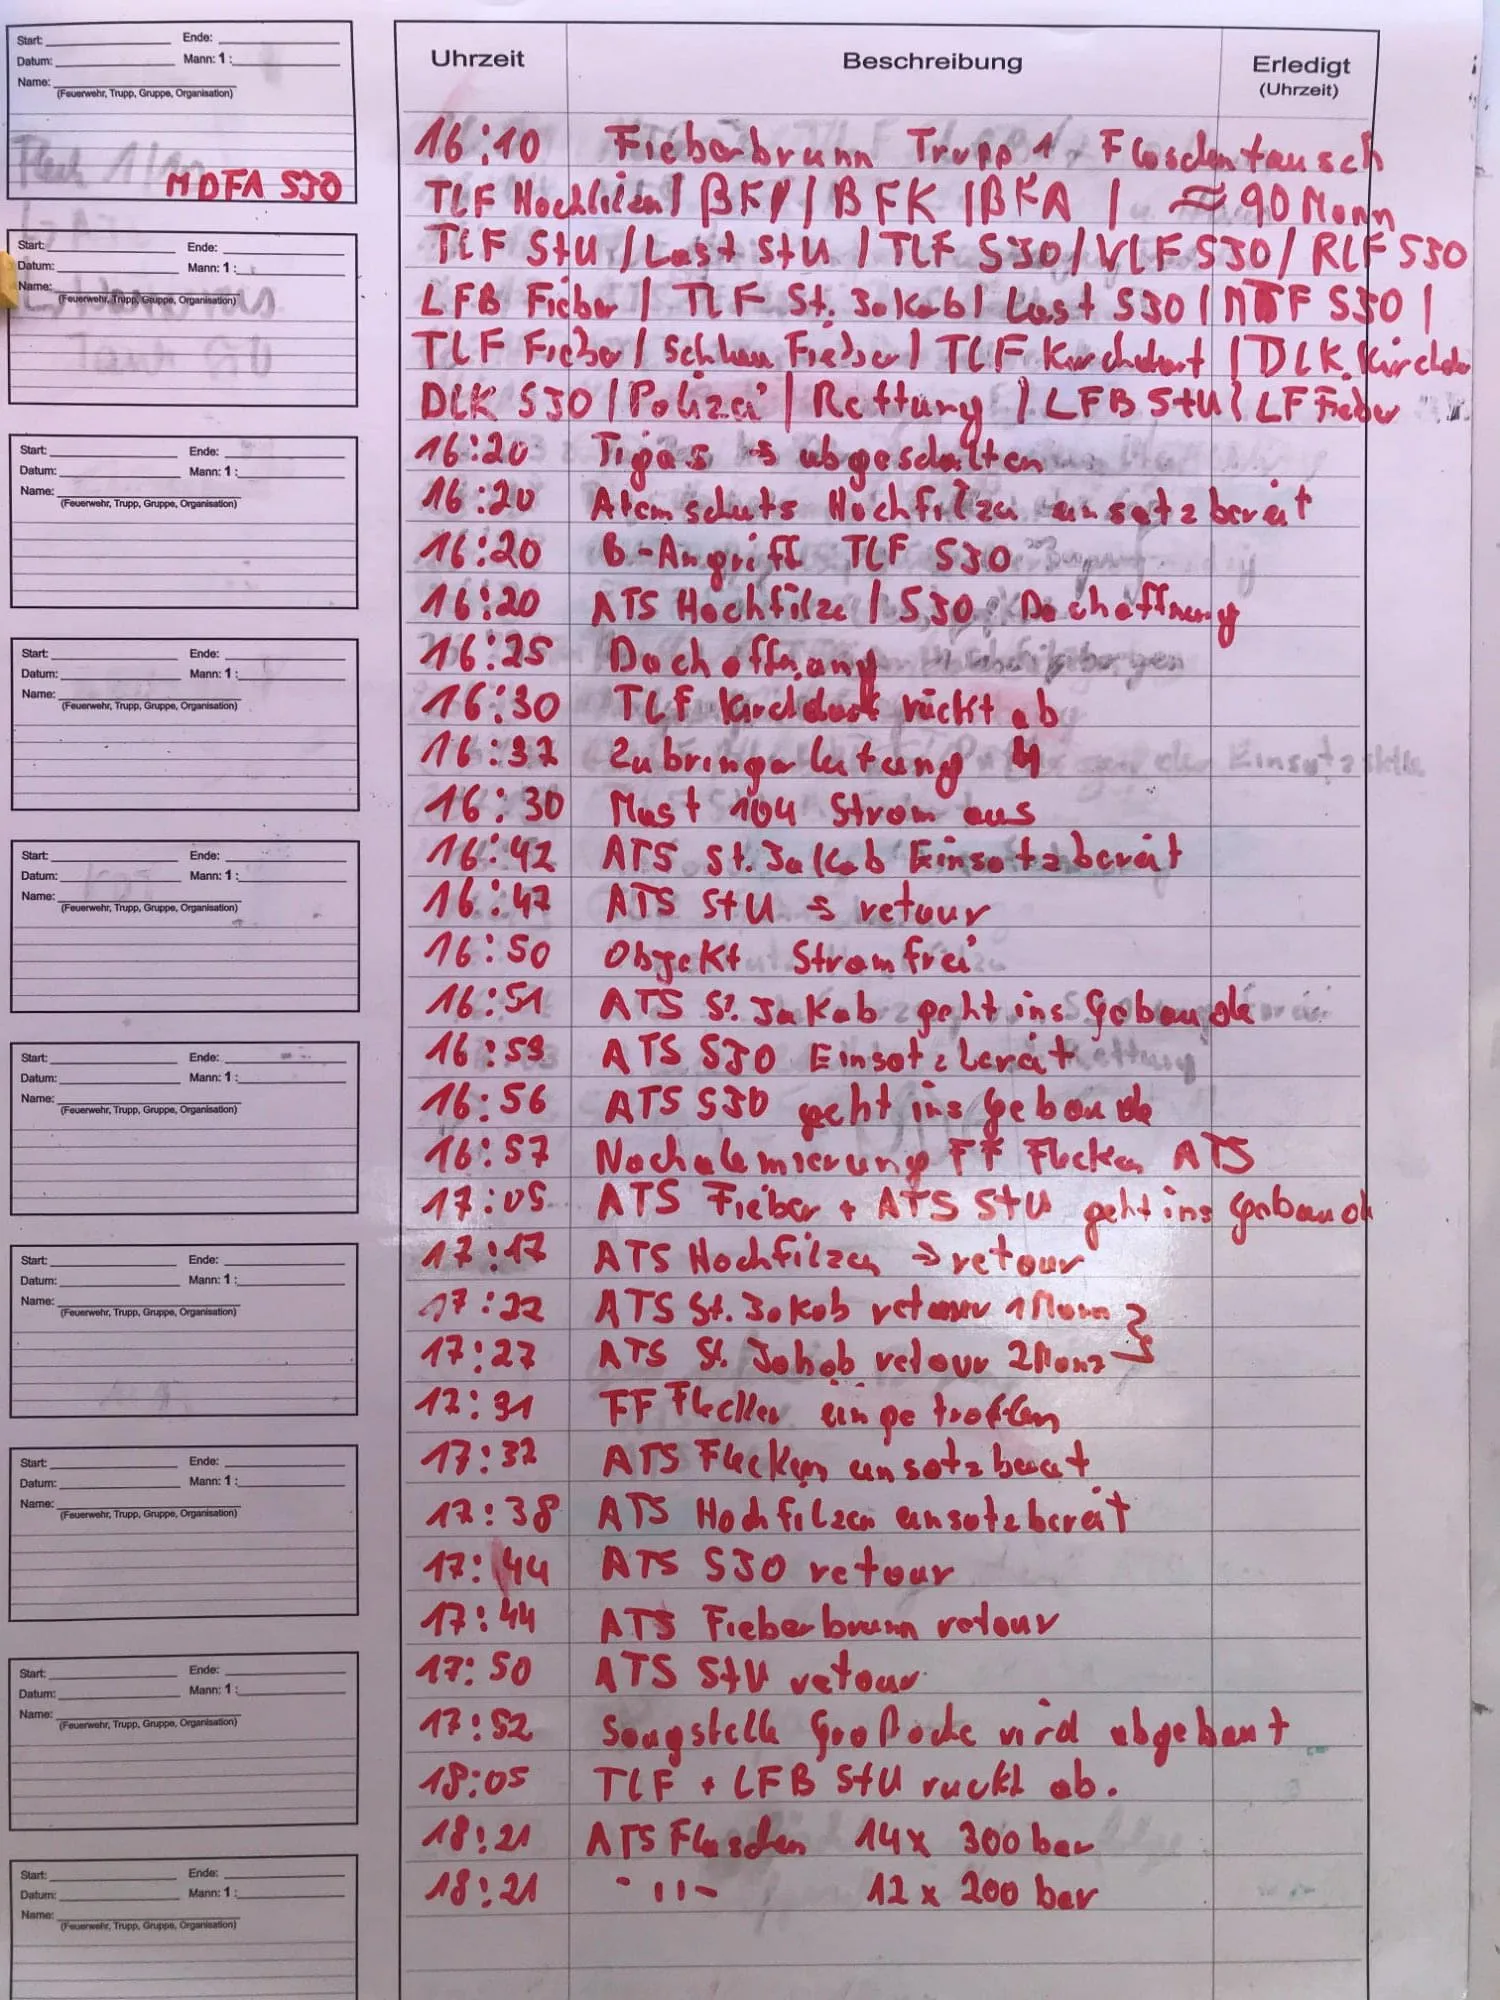 Start: Ende:
Datum: Mann: 1 :
Name:
(Feuerwehr, Trupp, Gruppe, Organisation)
MDFA SJO
Start: Ende:
Datum: Mann: 1 :
Name:
(Feuerwehr, Trupp, Gruppe, Organisation)
Start: Ende:
Datum: Mann: 1 :
Name:
(Feuerwehr, Trupp, Gruppe, Organisation)
Start: Ende:
Datum: Mann: 1 :
Name:
(Feuerwehr, Trupp, Gruppe, Organisation)
Start: Ende:
Datum: Mann: 1 :
Name:
(Feuerwehr, Trupp, Gruppe, Organisation)
Start: Ende:
Datum: Mann: 1 :
Name:
(Feuerwehr, Trupp, Gruppe, Organisation)
Start: Ende:
Datum: Mann: 1 :
Name:
(Feuerwehr, Trupp, Gruppe, Organisation)
Start: Ende:
Datum: Mann: 1 :
Name:
(Feuerwehr, Trupp, Gruppe, Organisation)
Start: Ende:
Datum: Mann: 1 :
Name:
(Feuerwehr, Trupp, Gruppe, Organisation)
Start: Ende:
Datum: Mann: 1 :
Name:
(Feuerwehr, Trupp, Gruppe, Organisation)
Uhrzeit Beschreibung Erledigt
(Uhrzeit)
16:10 Fieberbrunn Trupp 1 - Flaschentausch
TLF Hochfilzen / / BFK / BKA / ≈ 90 Mann
TLF StU / Last StU / TLF SJO / VLF SJO / RLF SJO
LFB Fieber / TLF St. Jakob / Last SJO / MTF SJO /
TLF Fieber / Schlau Fieber / TLF Kirchdorf / DLK Kirchdo
DLK SJO / Polizei / Rettung / LFB StU / LF Fieber
16:20 Tigas → abgeschalten
16:20 Atemschutz Hochfilzen einsatzbereit
16:20 B-Angriff TLF SJO
16:20 ATS Hochfilze / SJO Dachöffnung
16:25 Dachöffnung
16:30 TLF Kirchdorf rückt ab
16:37 Zubringerleitung
16:30 Mast 104 Strom aus
16:42 ATS St. Jakob Einsatzbereit
16:47 ATS StU → retour
16:50 Objekt Stromfrei
16:51 ATS St. Jakob geht ins Gebäude
16:53 ATS SJO Einsatzbereit
16:56 ATS SJO geht ins Gebäude
16:57 Nachalamierung FF Flecken ATS
17:05 ATS Fieber + ATS StU geht ins Gebäude
17:17 ATS Hochfilzen → retour
17:22 ATS St. Jakob retour 1 Mann
17:27 ATS St. Jakob retour 2 Mann
17:31 FF Flecken eingetroffen
17:32 ATS Flecken einsatzbereit
17:38 ATS Hochfilzen einsatzbereit
17:44 ATS SJO retour
17:44 ATS Fieberbrunn retour
17:50 ATS StU retour
17:52 Saugstelle Großache wird abgebaut
18:05 TLF + LFB StU rückt ab.
18:21 ATS Flaschen 14x 300 bar
18:21 - " - 12 x 200 bar